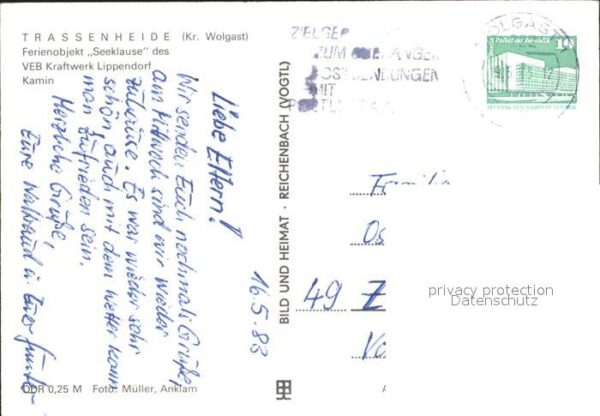 TRASSENHEIDE (Kr. Wolgast)
Ferienobjekt „Seeklause" des
VEB Kraftwerk Lippendorf
Kamin
Liebe Eltern!
Wir senden Euch nochmals Grüße,
am Mittwoch sind wir wieder
zuhause. Es war wieder sehr
schön auch mit dem Wetter kann
man zufrieden sein.
Herzliche Grüße,
Eure Waltraud u. Euer
16.5.83
DDR 0,25 M Foto: Müller, Anklam
BILD UND HEIMAT · REICHENBACH (VOGTL)
ZUM
MIT
WOLGAST
Palast der Republik
10
Familie
Os
49 Z
Vo
privacy protection
Datenschutz
A